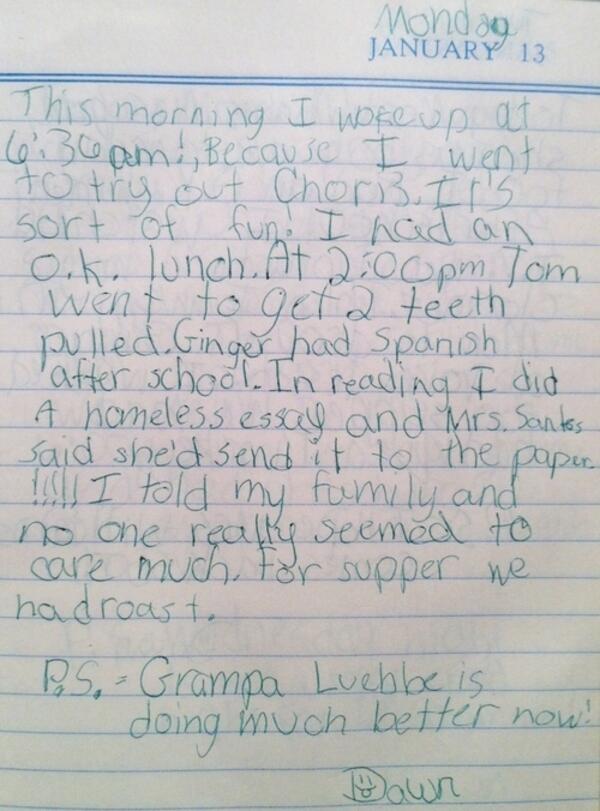 Monday
JANUARY 13
This morning I woke up at
6:30 am!, Because I went
to try out Choris. It's
sort of fun! I had an
O.K. lunch. At 2:00pm Tom
went to get 2 teeth
pulled. Ginger had Spanish
after school. In reading I did
A homeless essay and Mrs. Santos
said she'd send it to the paper
!!!!!! I told my family and
no one really seemed to
care much. For supper we
had roast.
P.S. - Grampa Luebbe is
doing much better now!
Dawn